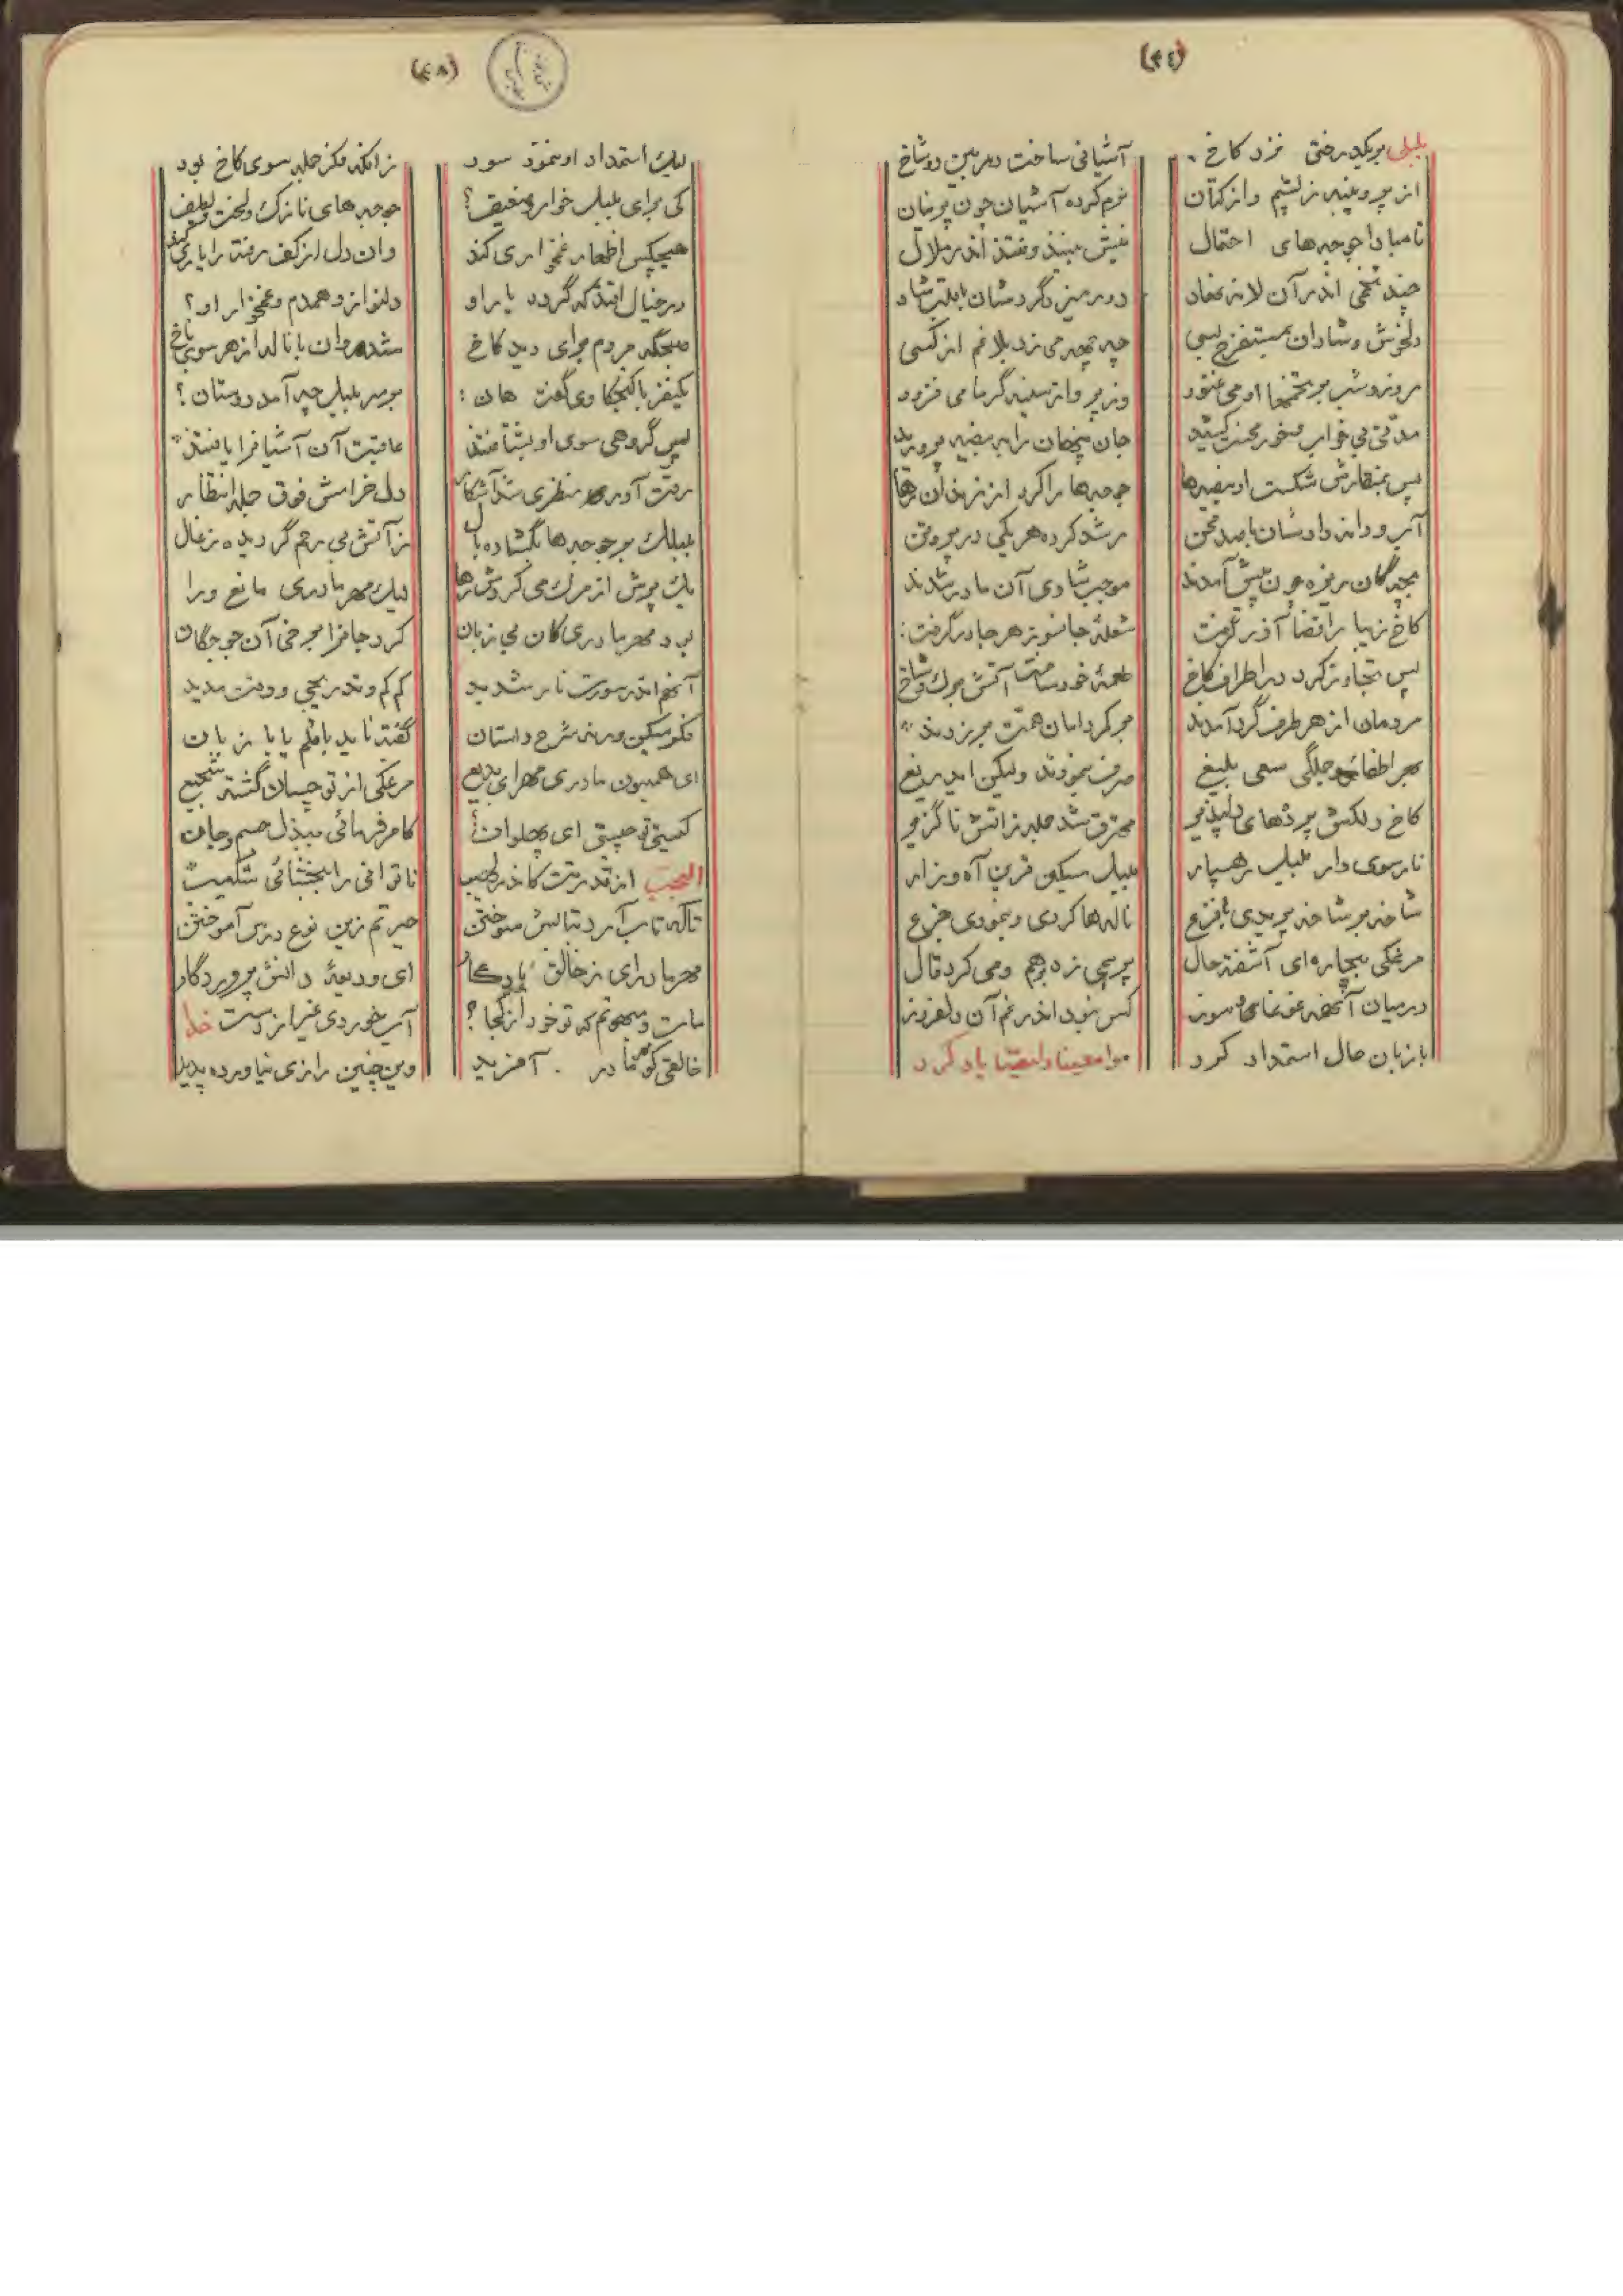 (٤٤)
بلبلی بر یکدرختی نزد کاخ آشیانی ساخت در بین دو شاخ
از پر و پنبه ز پشم و از کتان نرم کرده آشیان چون پرنیان
تا مبادا جوجه‌های احتمال نیش بینند و فتند اندر ملال
چند تخمی اندر آن لانه نهاد دور میزد گردشان با بلبل شاد
دلخوش و شادان بمستفرخ بسی چه چهه می زد بلا غم از کسی
روز و شب بر تخمها او می غنود وز پر و از سینه گرما می فزود
مدتی بی خواب و خور محنت کشید جان پنهان را به بیضه پرورید
پس بمنقارش شکست او بیضه‌ها جوجه‌ها را کرد از زندان رها
آب و دانه دادشان با صد محن رشد کرده هر یکی در پروتن
بچه‌گان ریزه چون پیش آمدند موجب شادی آن مادر شدند
کاخ زیبا را قضا آذر گرفت شعلۀ جانسوز هر جا در گرفت:
پس تجاوز کرد در اطراف کاخ طعمۀ خود ساخت آتش برگ و شاخ
مردمان از هر طرف گرد آمدند بر کر دامان همت بر زدند
بهر اطفائش جملگی سعی بلیغ صرف بنمودند ولیکن ایدریغ
کاخ دلکش پرده‌های دلپذیر محترق شد جمله ز اتش ناگزیر
نار سوی دار بلبل رهسپار بلبل مسکین قرین آه و زار
شاخه بر شاخه پریدی با فزع ناله‌ها کردی و بنمودی جزع
مرغکی بیچاره‌ای آشفته حال پر بپی زد بر هم و می کرد قال
در میان آنهمه غوغا و سوز کس نبود اندر غم آن دلفروز
با زبان حال استمداد کرد
(٤٨)
لیک استمداد او ننمود سود ز انکه فکر جمله سوی کاخ بود
کی برای بلبل خوار و ضعیف؟ جوجه‌های نازک و لخت و لطیف
هیچکس اظهار غمخواری کند وان دل از کف رفته را یاری کند
در خیال افتد که گردد یار او دلنواز و همدم و غمخوار او؟
صبحگه مردم برای دید کاخ شد روان با ناله از هر سوی باخ
یکنفر با کنجکاوی گفت هان: بر سر بلبل چه آمد دوستان؟
پس گروهی سوی او بشتافتند عاقبت آن آشیا فرا یافتند
رقت آور منظری شد آشکار دل خراش فوق جمله انتظار
بلبلک بر جوجه‌ها بگشاده بال ز آتش بی رحم گردیده زغال
یک پرش از مرگ می کردش رها لیک مهر مادری مانع ورا
بود مهر مادری کان بی زبان کرد جا فرا بر خی آن جوجگان
آنهم اندر سورت نار شدید کم کم و تدریجی و وقت مدید
فکر مسکین ورنه شرح داستان گفته ناید با قلم یا با زبان
ای همیون مادری مهرای بدیع مرغکی از تو چسان گشته شجیع
کیستی تو چیستی ای پهلوان؟ کامر فرمائی ببذل جسم و جان
العجب از قدرتت کاندر لهیب ناتوانی را ببخشائی شکیب
تا که تاب آرد تنالیش سوختن حیرتم زین نوع درس آموختن
مهر مادر ای ز خالق یادگار ای ودیعۀ دانش پروردگار
مات و مبهوتم که تو خود از کجا؟ آب خوردی غیر از دست خدا
خالقی کو مادر آفرید وین چنین رازی نیاورده پدید